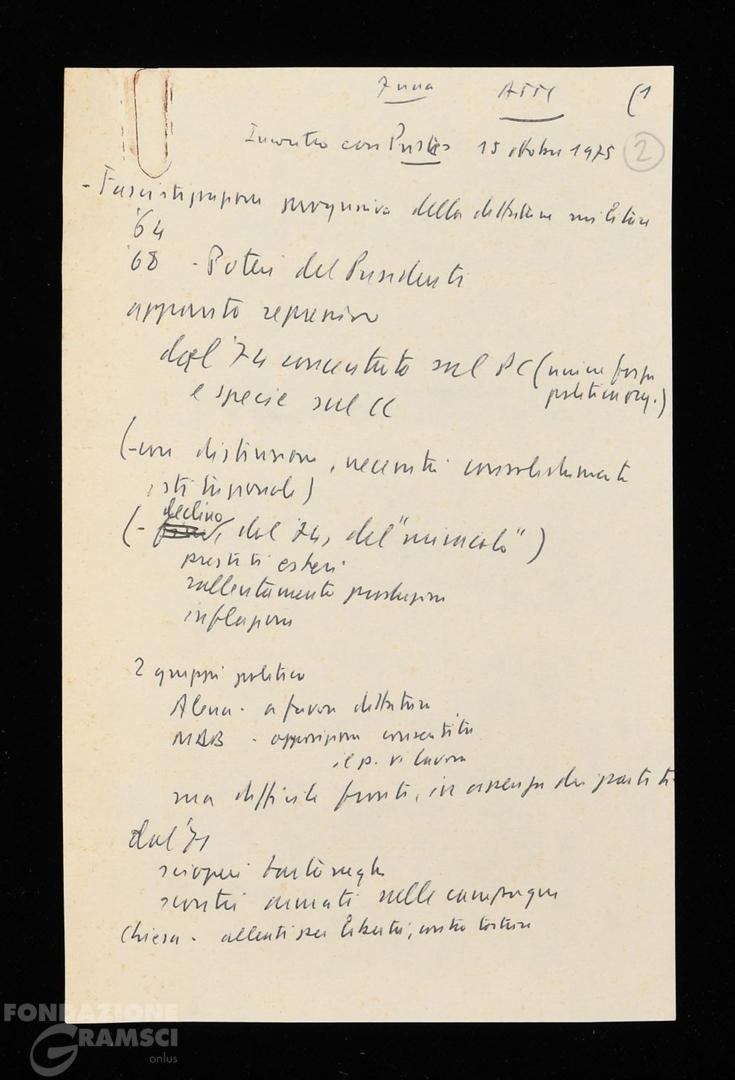 Atti (1
Incontro con Prestes 15 ottobre 1975 2
- Fascistizzazione progressiva della dittatura militare
'64
'68 - Poteri del Presidente
apparato repressivo
dal '74 concentrato sul PC (unica forza
politica org.)
e specie sul CC
(- con distensione, necessità consolidamento
istituzionale)
(- declino, dal '74, del "miracolo")
prestiti esteri
rallentamento produzione
inflazione
2 gruppi politici
Arena - a favore dittatura
MDB - opposizione consentita
il p. vi lavora
ma difficile fronte, in assenza dei partiti
dal '71
scioperi tartaruga
scontri armati nelle campagne
Chiesa - alleati per libertà, contro torture
FONDAZIONE
GRAMSCI
onlus